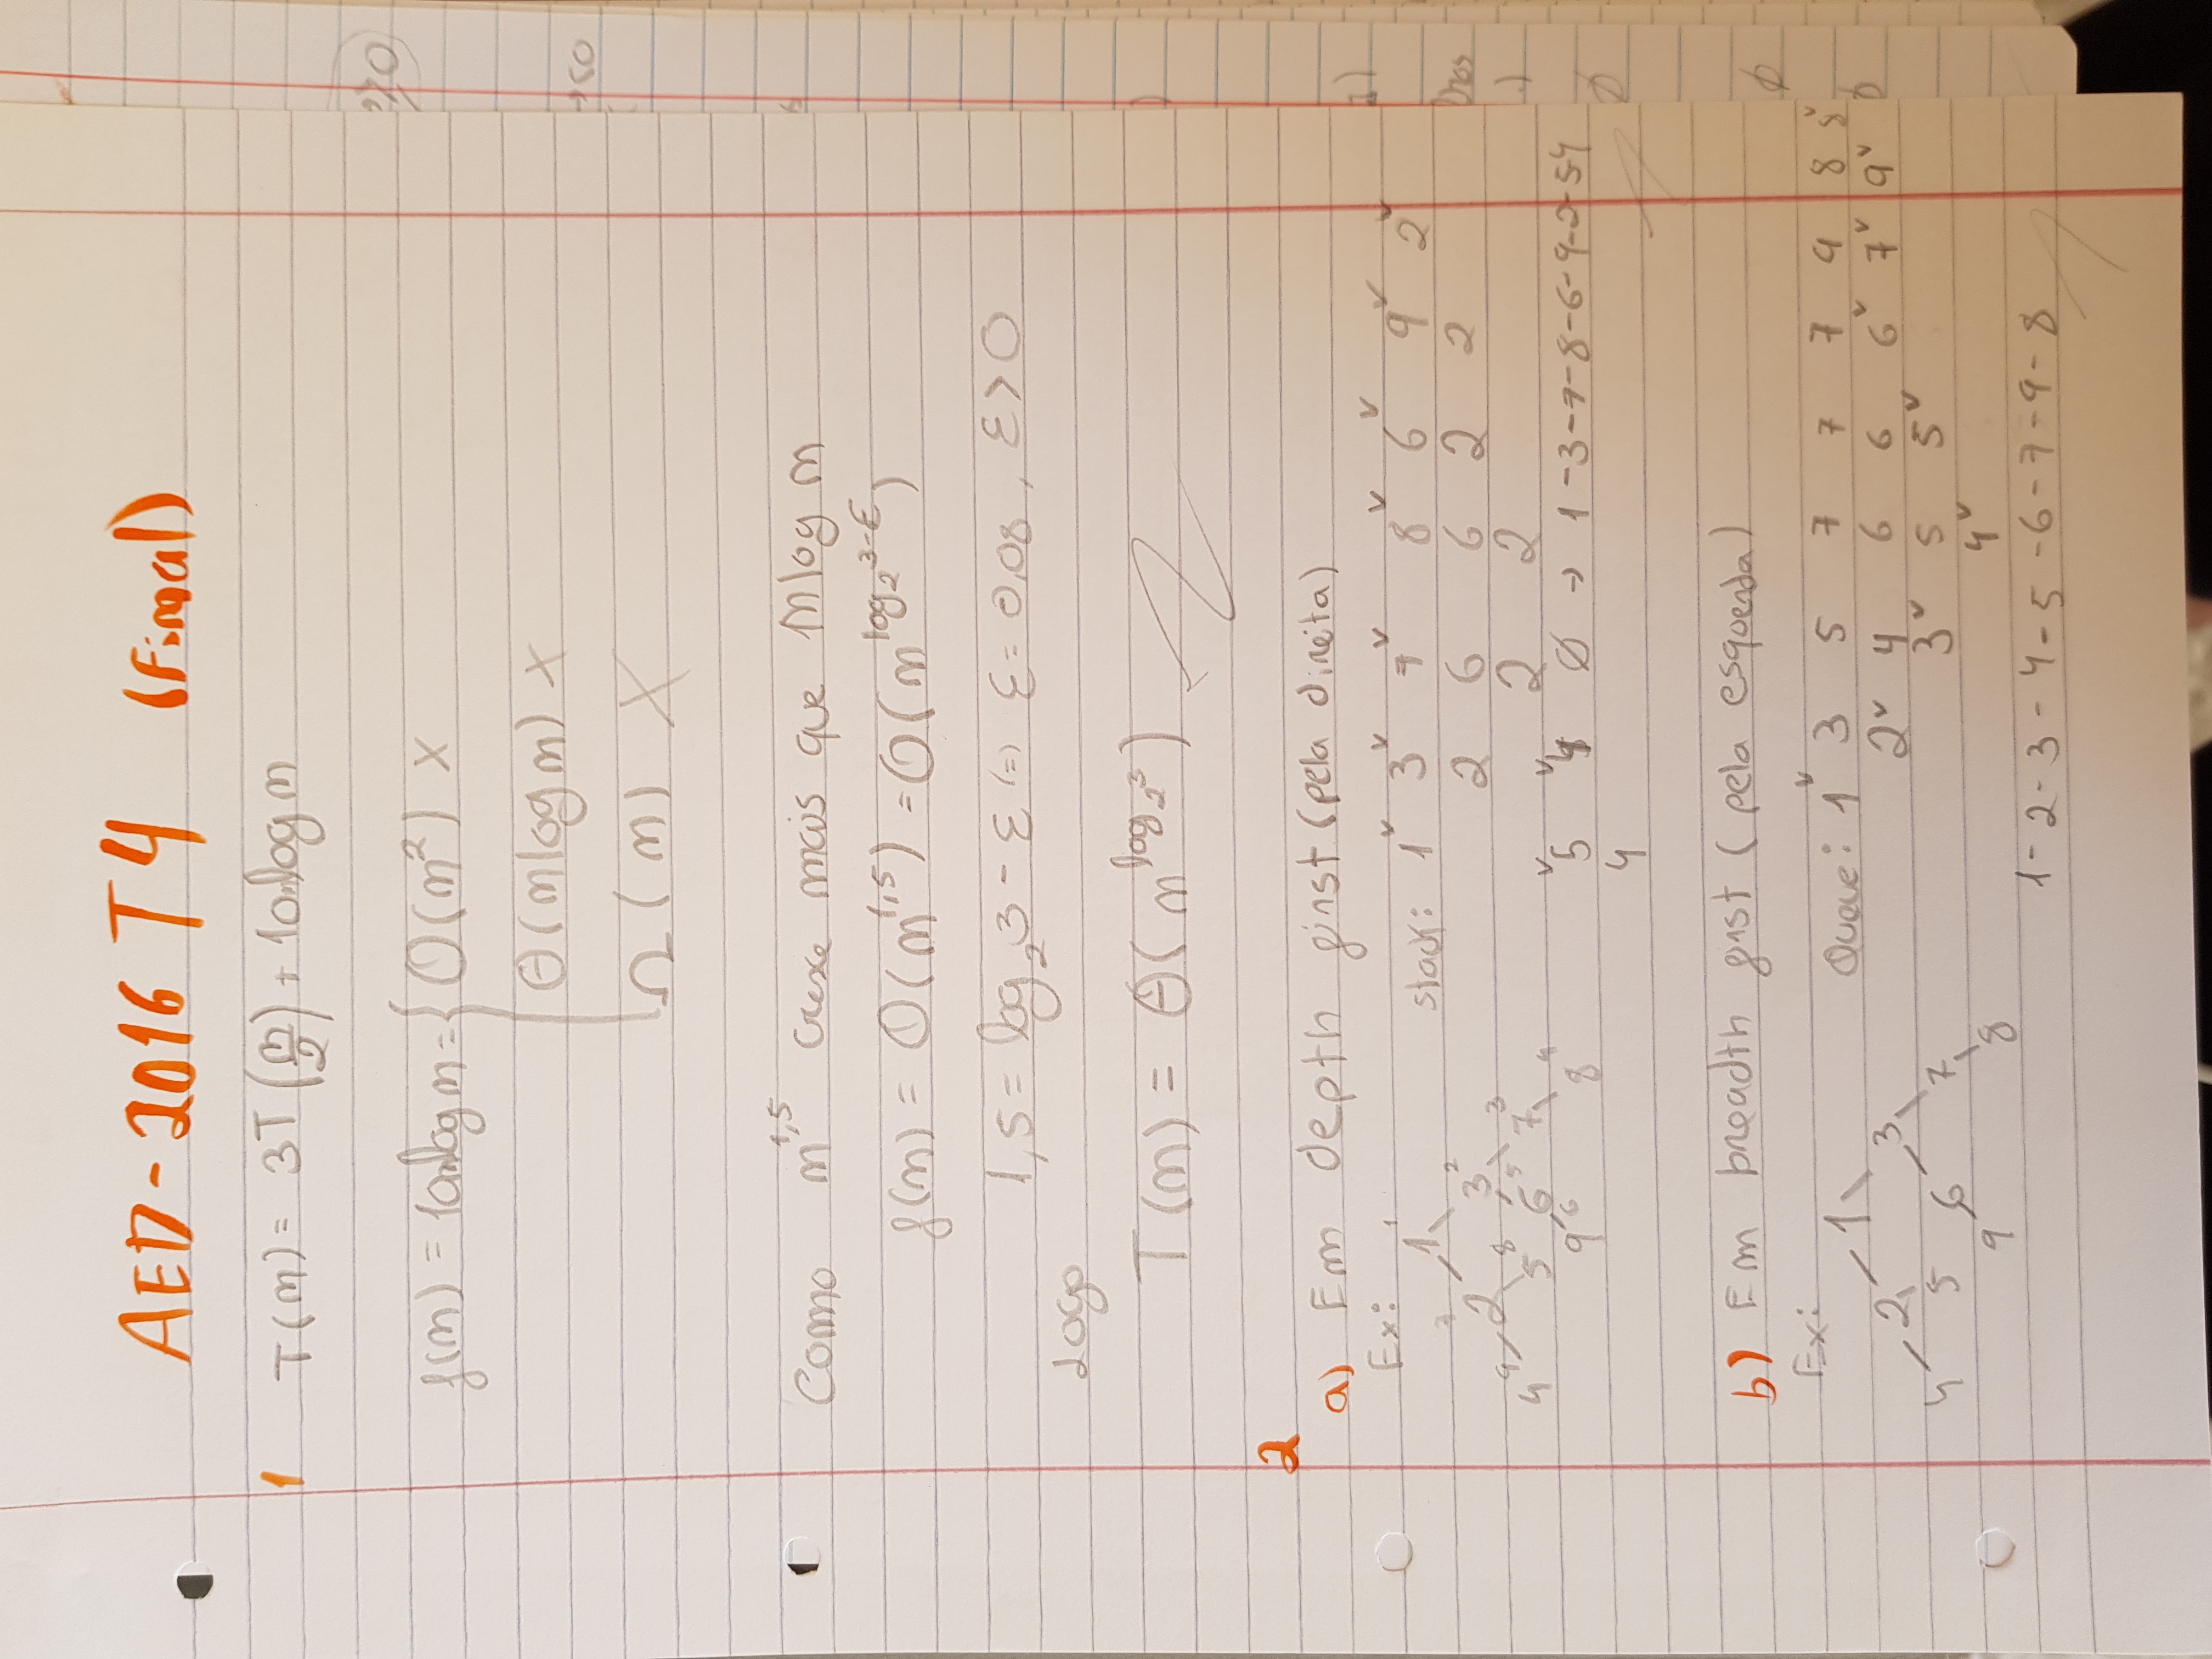 AED-2016 T4 (Final)
1 T(n) = 3T(n/2) + 10nlog n
f(n) = 10nlog n = { O(n²) X
Θ(nlog n) X
Ω(n) X
Como n^1,5 cresce mais que nlog n
f(n) = O(n^1,5) = O(n^log₂3-ε)
1,5 = log₂3 - ε (=) ε = 0,08, ε > 0
Logo
T(n) = Θ(n^log₂3)
2
a) Em depth first (pela direita)
Ex:
1
1
7 2
2 3
9 8 5 3
4 5 6 7
6 4
9 8
stack: 1✓ 3✓ 7✓ 8✓ 6✓ 9✓ 2✓
2 6 6 2 2
2 2
✓5 ✓4 Ø → 1-3-7-8-6-9-2-5-4
4
b) Em breadth first (pela esquerda)
Ex:
1
2 3
4 5 6 7
9 8
Queue: 1✓ 3 5 7 7 7 9 8 8✓
2✓ 4 6 6 6✓ 7✓ 9✓
3✓ 5 5✓
4✓
1-2-3-4-5-6-7-9-8